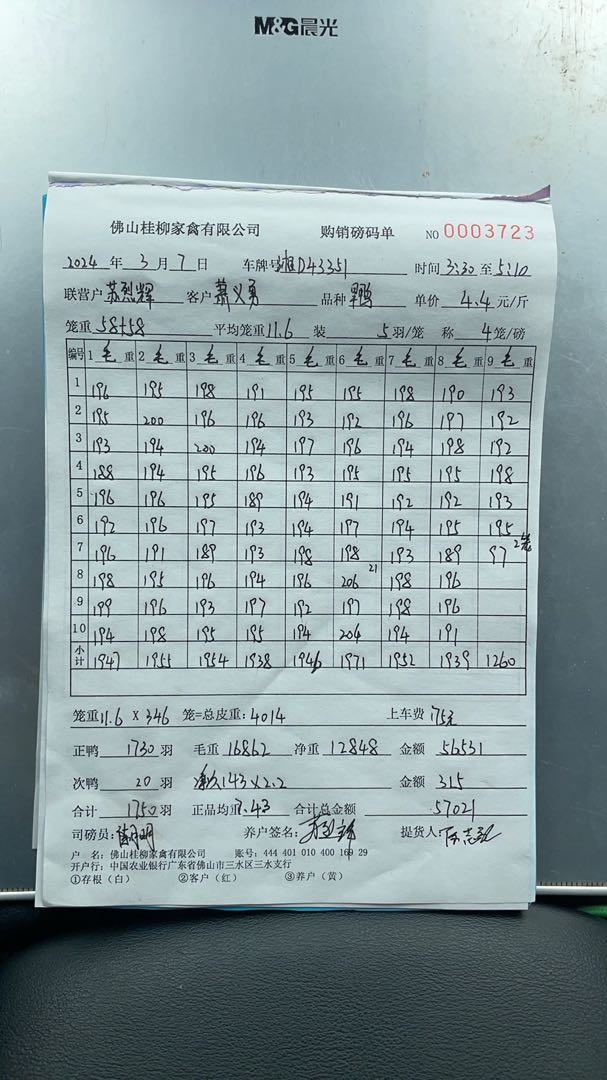 M&G晨光
佛山桂柳家禽有限公司 购销磅码单 NO 0003723
2024 年 3 月 7 日 车牌号 湘D43351 时间 3:30 至 5:10
联营户 苏烈辉 客户 萧义勇 品种 单价 4.4 元/斤
笼重 58+58 平均笼重 11.6 装 5 羽/笼 称 4 笼/磅
编号 1 毛 重 2 毛 重 3 毛 重 4 毛 重 5 毛 重 6 毛 重 7 毛 重 8 毛 重 9 毛 重
1 196 195 198 191 195 195 198 190 193
2 195 200 196 196 193 192 196 197 192
3 193 194 200 194 197 196 194 198 192
4 188 194 195 196 193 195 195 195 198
5 196 196 195 189 194 191 192 192 193
6 192 196 197 193 194 197 194 195 195
7 196 191 189 193 198 198 193 189 97 2笼
8 198 195 196 194 196 206 21 198 196
9 199 196 193 197 192 197 198 196
10 194 198 195 195 194 204 194 191
小计 1947 1955 1954 1938 1946 1971 1952 1939 1260
笼重 11.6 X 346 笼=总皮重: 4014 上车费 175元
正鸭 1730 羽 毛重 16862 净重 12848 金额 56531
次鸭 20 羽 143×2.2 金额 315
合计 1750 羽 正品均重 7.43 合计总金额 57021
司磅员: 养户签名: 提货人:
户 名: 佛山桂柳家禽有限公司 账号: 444 401 010 400 169 29
开户行: 中国农业银行广东省佛山市三水区三水支行
①存根（白） ②客户（红） ③养户（黄）